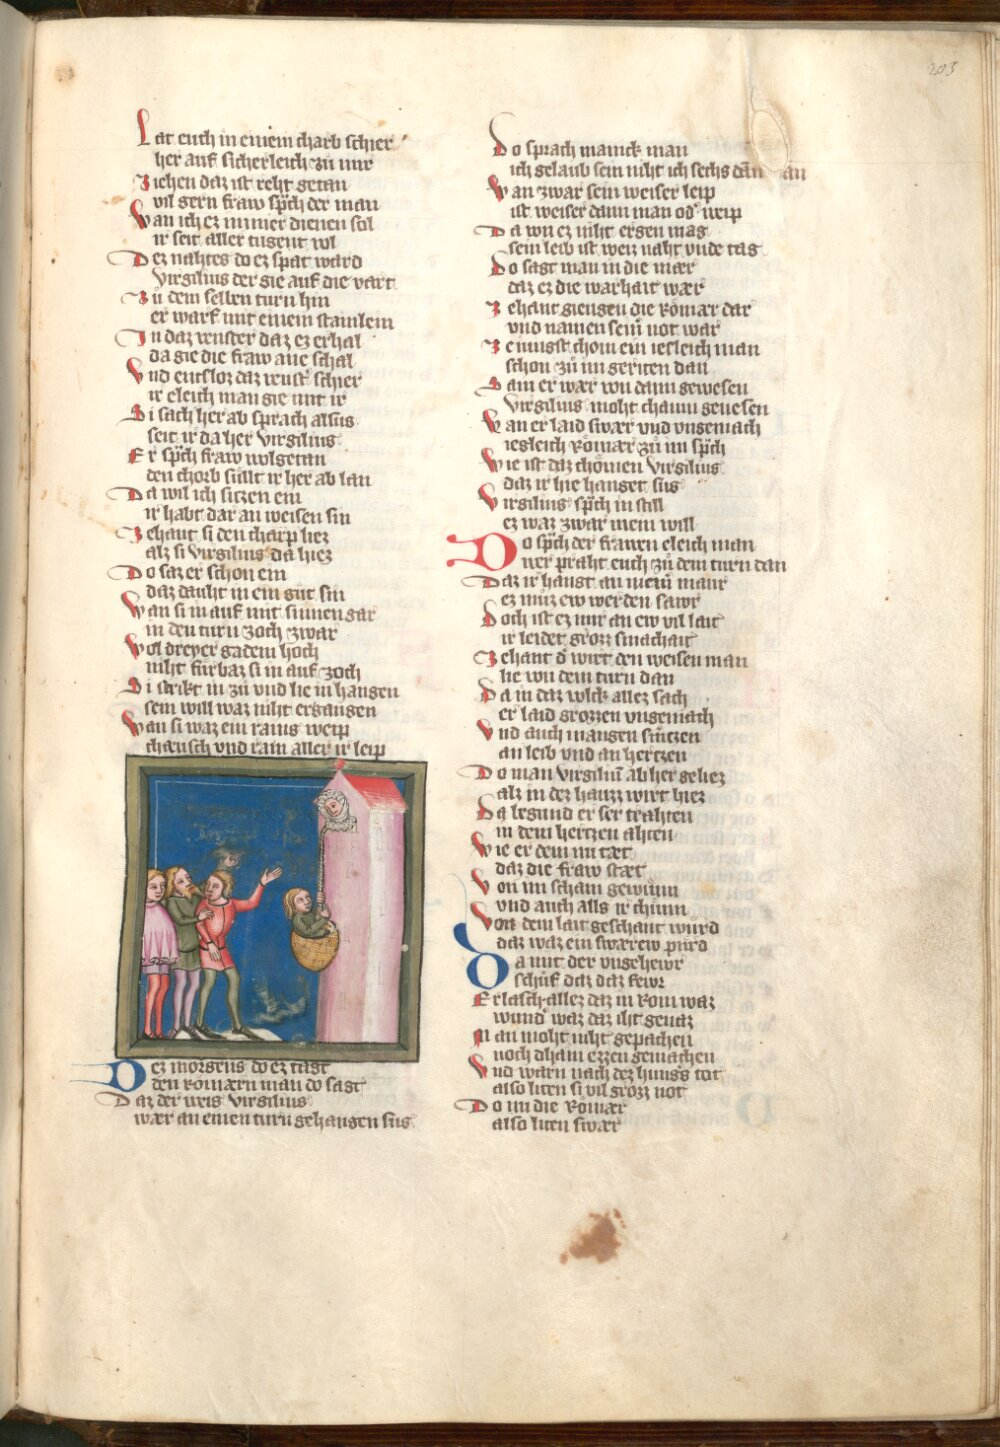 203
Lat euch in einem charb schier
her auf sicherleich zu mir
Si iehen daz ist reht getan
vil gern fraw sp̄ch der man
Wan ich ez immer dienen sol
ir seit aller tugent vol
Dez nahtes do ez spat ward
Virgilius der gie auf die vart
Zů dem selben turn hin
er warf mit einem stainlein
In daz venster daz ez erhal
da gie die fraw ane schal
Vnd entsloz daz venst̄ schier
ir eleich man gie mit ir
Si sach her ab sprach alsus
seit ir da her Virgilius
Er sp̄ch fraw wolgetan
den chorb sullt ir her ab lan
Da wil ich sitzen ein
ir habt dar an weisen sin
Zehant si den charp liez
alz si Virgilius da hiez
Do saz er schon ein
daz dauht in ein gut sin
Wan si in auf mit sinnen gar
in den turn zoch zwar
Wol dreyer gadem hoch
niht furbaz si in auf zoch
Si strikt in zů vnd lie in hangen
sein will waz niht ergangen
Wan si waz ein rains weip
cháusch vnd rain aller ir leip
Dez morgens do ez tagt
den Romærn man do sagt
Daz der weis Virgilius
wær an einen turn gehangen sus
Do sprach manick man
ich gelaub sein niht ich sechs dān an
Wan zwar sein weiser leip
ist weiser dann man od̄ weip
Da von ez niht ergen mag
sein leib ist weiz naht vnde tag
Do sagt man in die mær
daz ez die warhait wær
Zehant giengen die Römær dar
vnd namen sein not war
Ze mugst chom ein iesleich man
schon zů im geriten dan
Sam er wær von dann gewesen
Virgilius moht chaum genesen
Wan er laid swær vnd vngemach
iegleich Römær zů im sp̄ch
Wie ist daz chömen Virgilius
daz ir hie hanget sus
Virgilius sp̄ch in still
ez waz zwar mein will
Do sp̄ch der frawen eleich man
wer praht euch zů dem turn dan
Daz ir hangt an meiner maur
ez můz ew werden sawr
Doch ist ez mir an ew vil lait
ir leidet grozz smachait
Zehant d̄ wirt den weisen man
lie von dem turn dan
Da in daz volck allez sach
er laid grozzen vngemach
Vnd auch mangen smertzen
an leib vnd an hertzen
Do man Virgiliū ab her geliez
alz in dez hauzz wirt hiez
Da begund er ser trahten
in dem hertzen ahten
Wie er dem im tæt
daz die fraw stæt
Von im scham gewunn
vnd auch alls ir chunn
Von dem lait geschant wurd
daz waz ein swærew purd
Da mit der vngehewr
schůf daz daz fewr
Erlasch allez daz in Rom waz
wund̄ waz daz iht genaz
Man moht niht gepachen
noch dhain ezzen gemachen
Vnd warn nach dez hunḡs tot
also liten si vil grozz not
Do nu die Römær
also liten swær